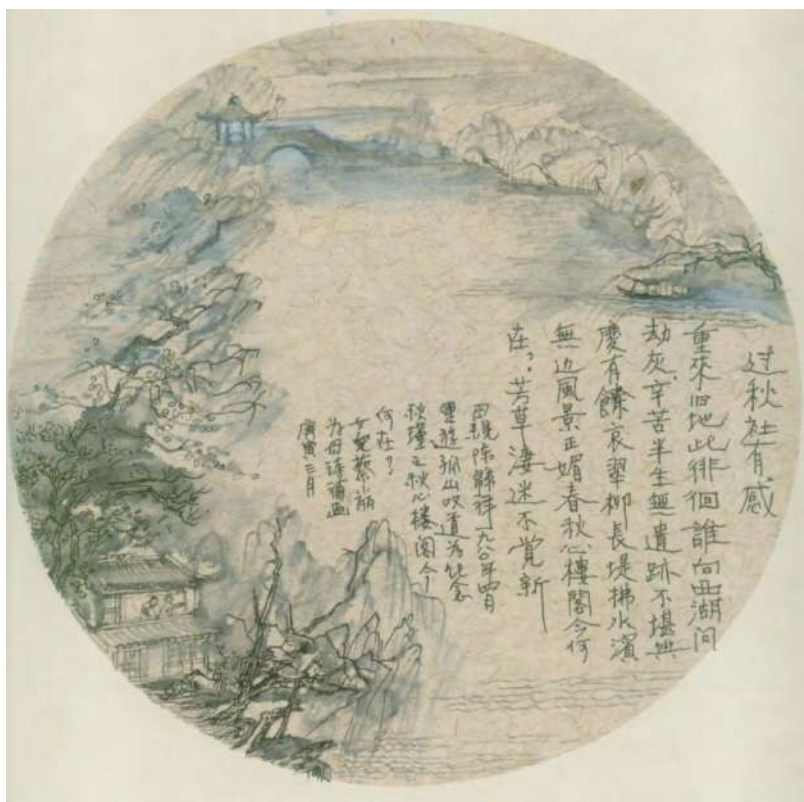 过秋社有感
重來旧地此徘徊誰向西湖问
劫灰辛苦半生無遺跡不堪興
廢有餘哀翠柳長堤拂水濱
無边風景正媚春秋心樓閣今何
在？芳草淒迷不覚新
母親陈 祥一九八〇年四月
重遊孤山叹道为纪念
秋瑾之秋心樓阁今
何在？
女兒蔡 
为母诗補画
庚寅三月